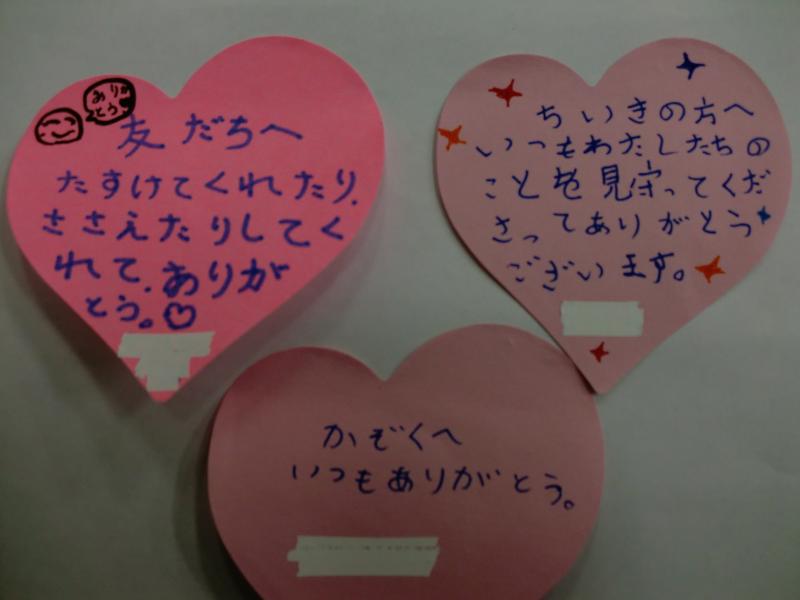 ありが
とう
友だちへ
たすけてくれたり、
ささえたりしてく
れて、ありが
とう。
ちいきの方へ
いつもわたしたちの
ことを見守ってくだ
さってありがとう
ございます。
かぞくへ
いつもありがとう。